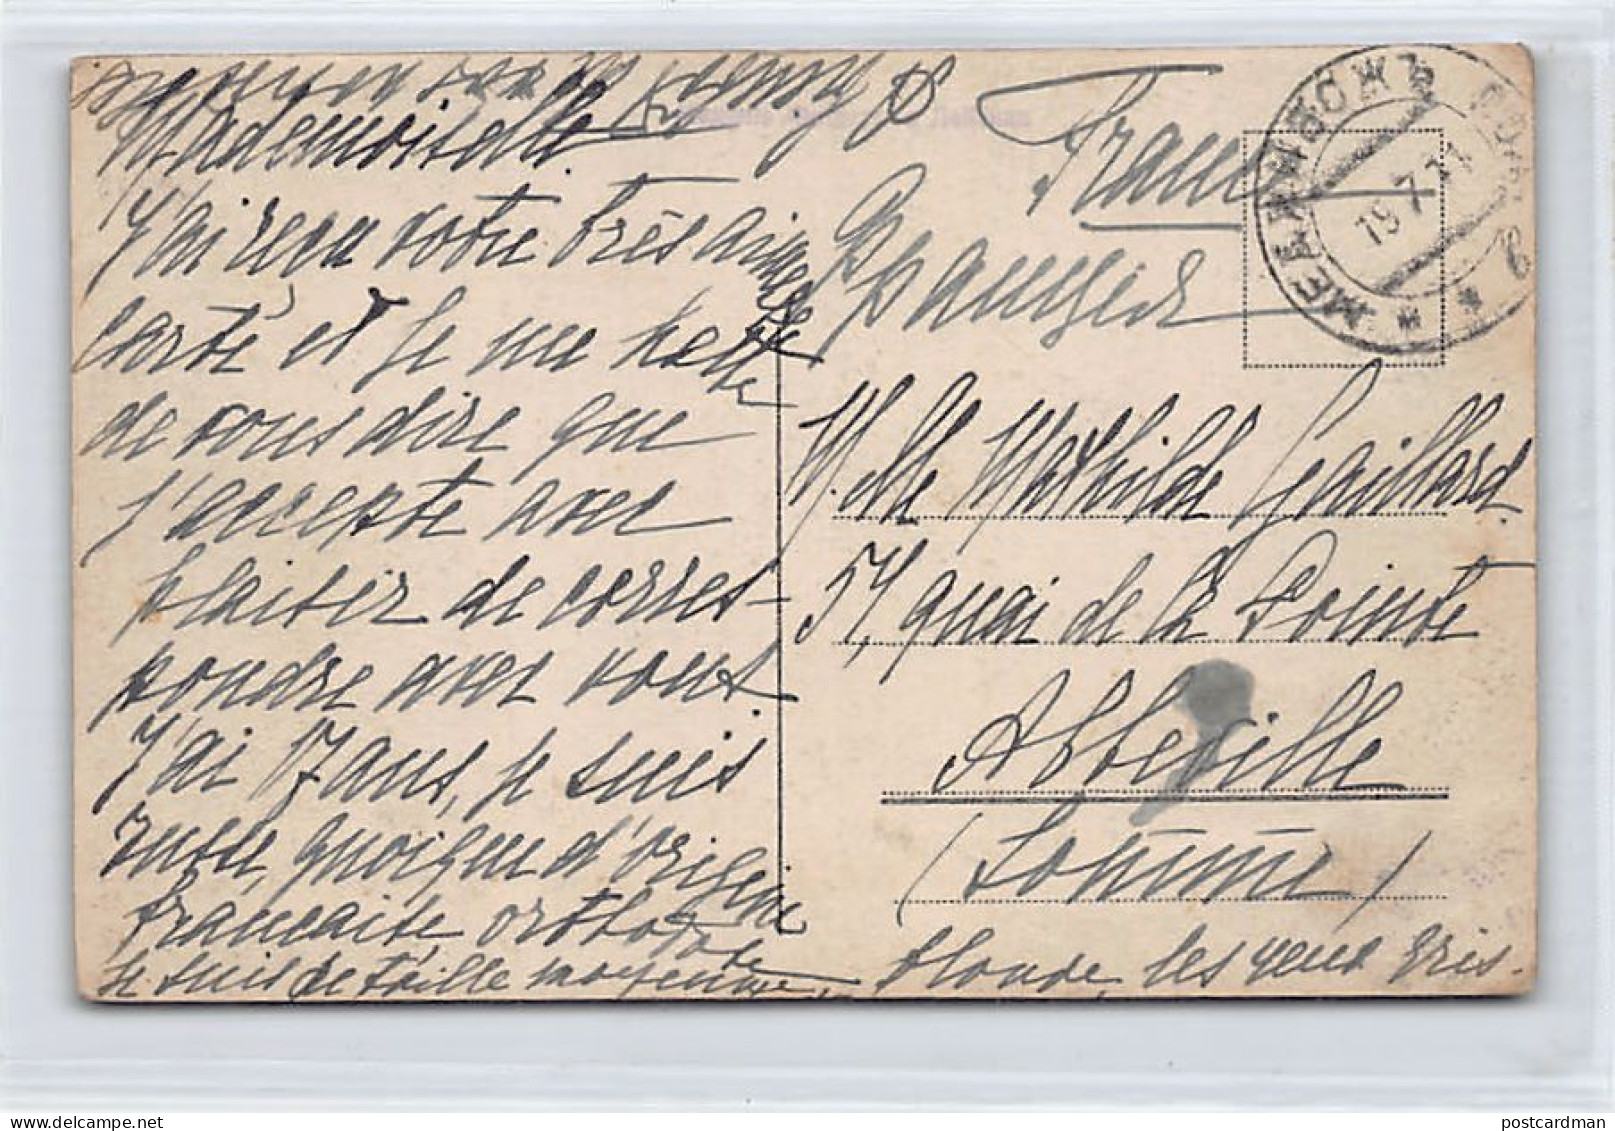 Mademoiselle.
J'ai reçu votre très aimable
carte et je me hâtte
de vous dire que
j'accepte avec
plaisir de corres-
pondre avec vous.
J'ai 17 ans, je suis
russe, quoique d'origine
française, orthodoxe
je suis de taille moyenne, blonde, les yeux gris.
France
M.elle Mathilde Gaillard.
57, quai de la Pointe
Abbeville
(Somme)
19 7
postcardman